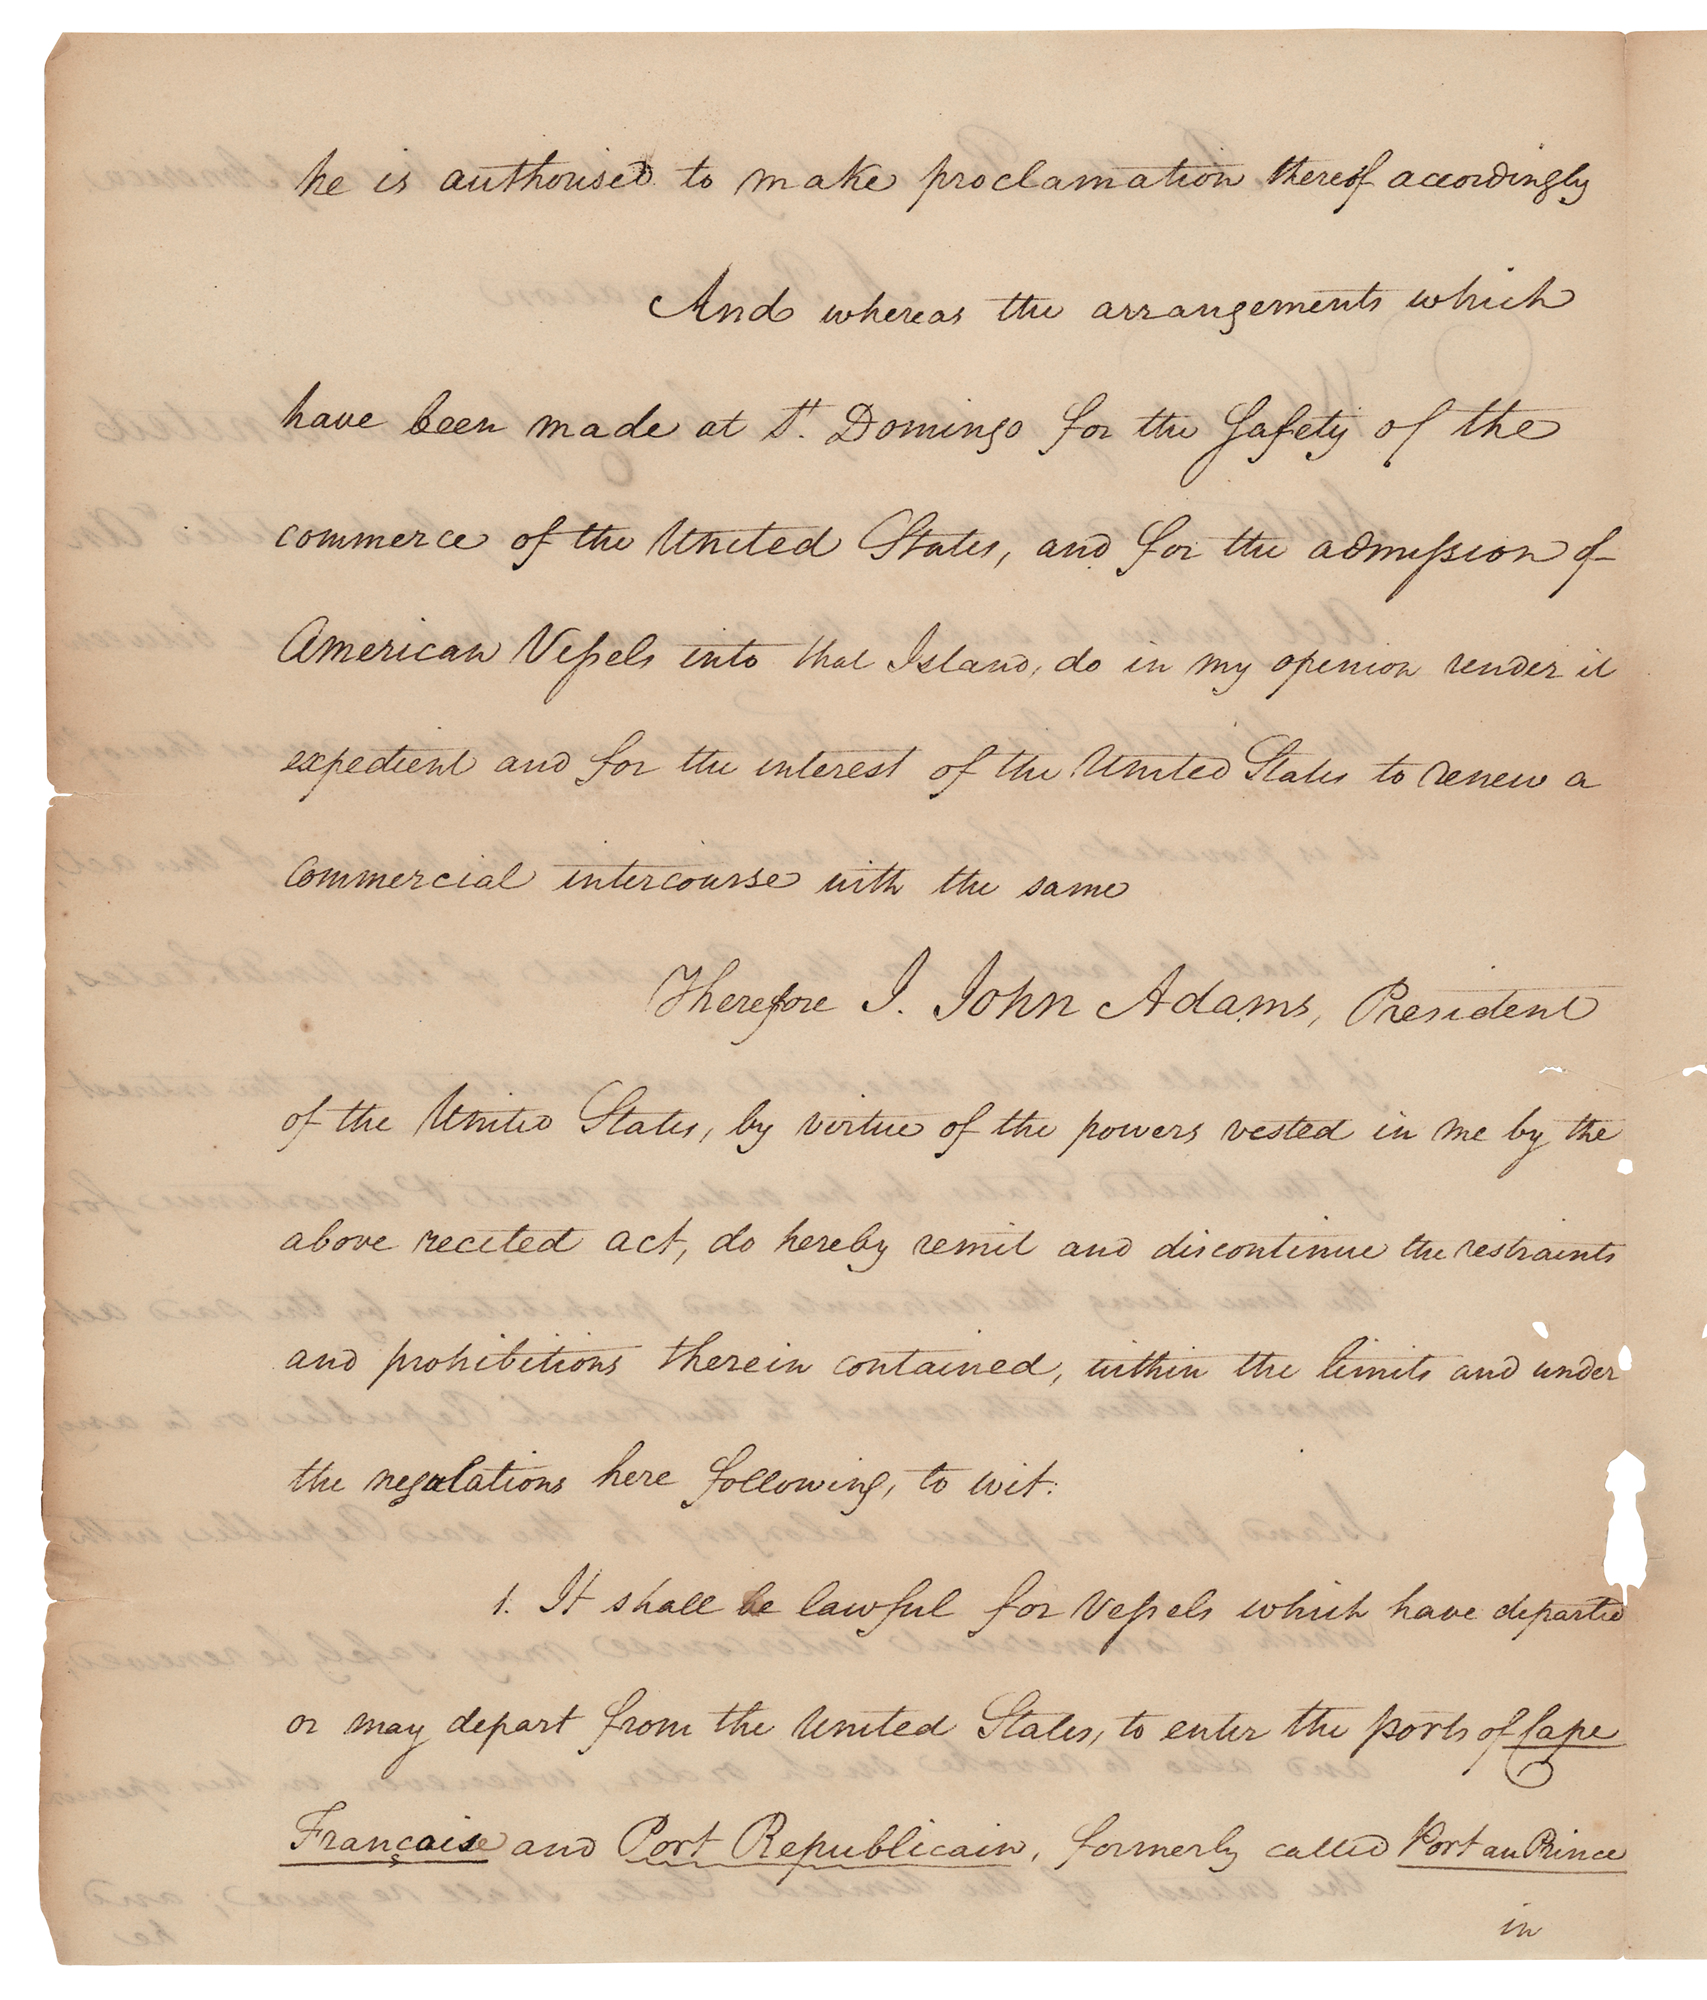 he is authorised to make proclamation thereof accordingly
And whereas the arrangements which
have been made at St. Domingo for the Safety of the
commerce of the United States, and for the admission of
American Vessels into that Island, do in my opinion render it
expedient and for the interest of the United States to renew a
Commercial intercourse with the same
Therefore I. John Adams, President
of the United States, by virtue of the powers vested in me by the
above recited act, do hereby remit and discontinue the restraints
and prohibitions therein contained, within the limits and under
the regulations here following, to wit:
1. It shall be lawful for Vessels which have departed
or may depart from the United States, to enter the ports of Cape
Française and Port Republicain, formerly called Port au Prince
in